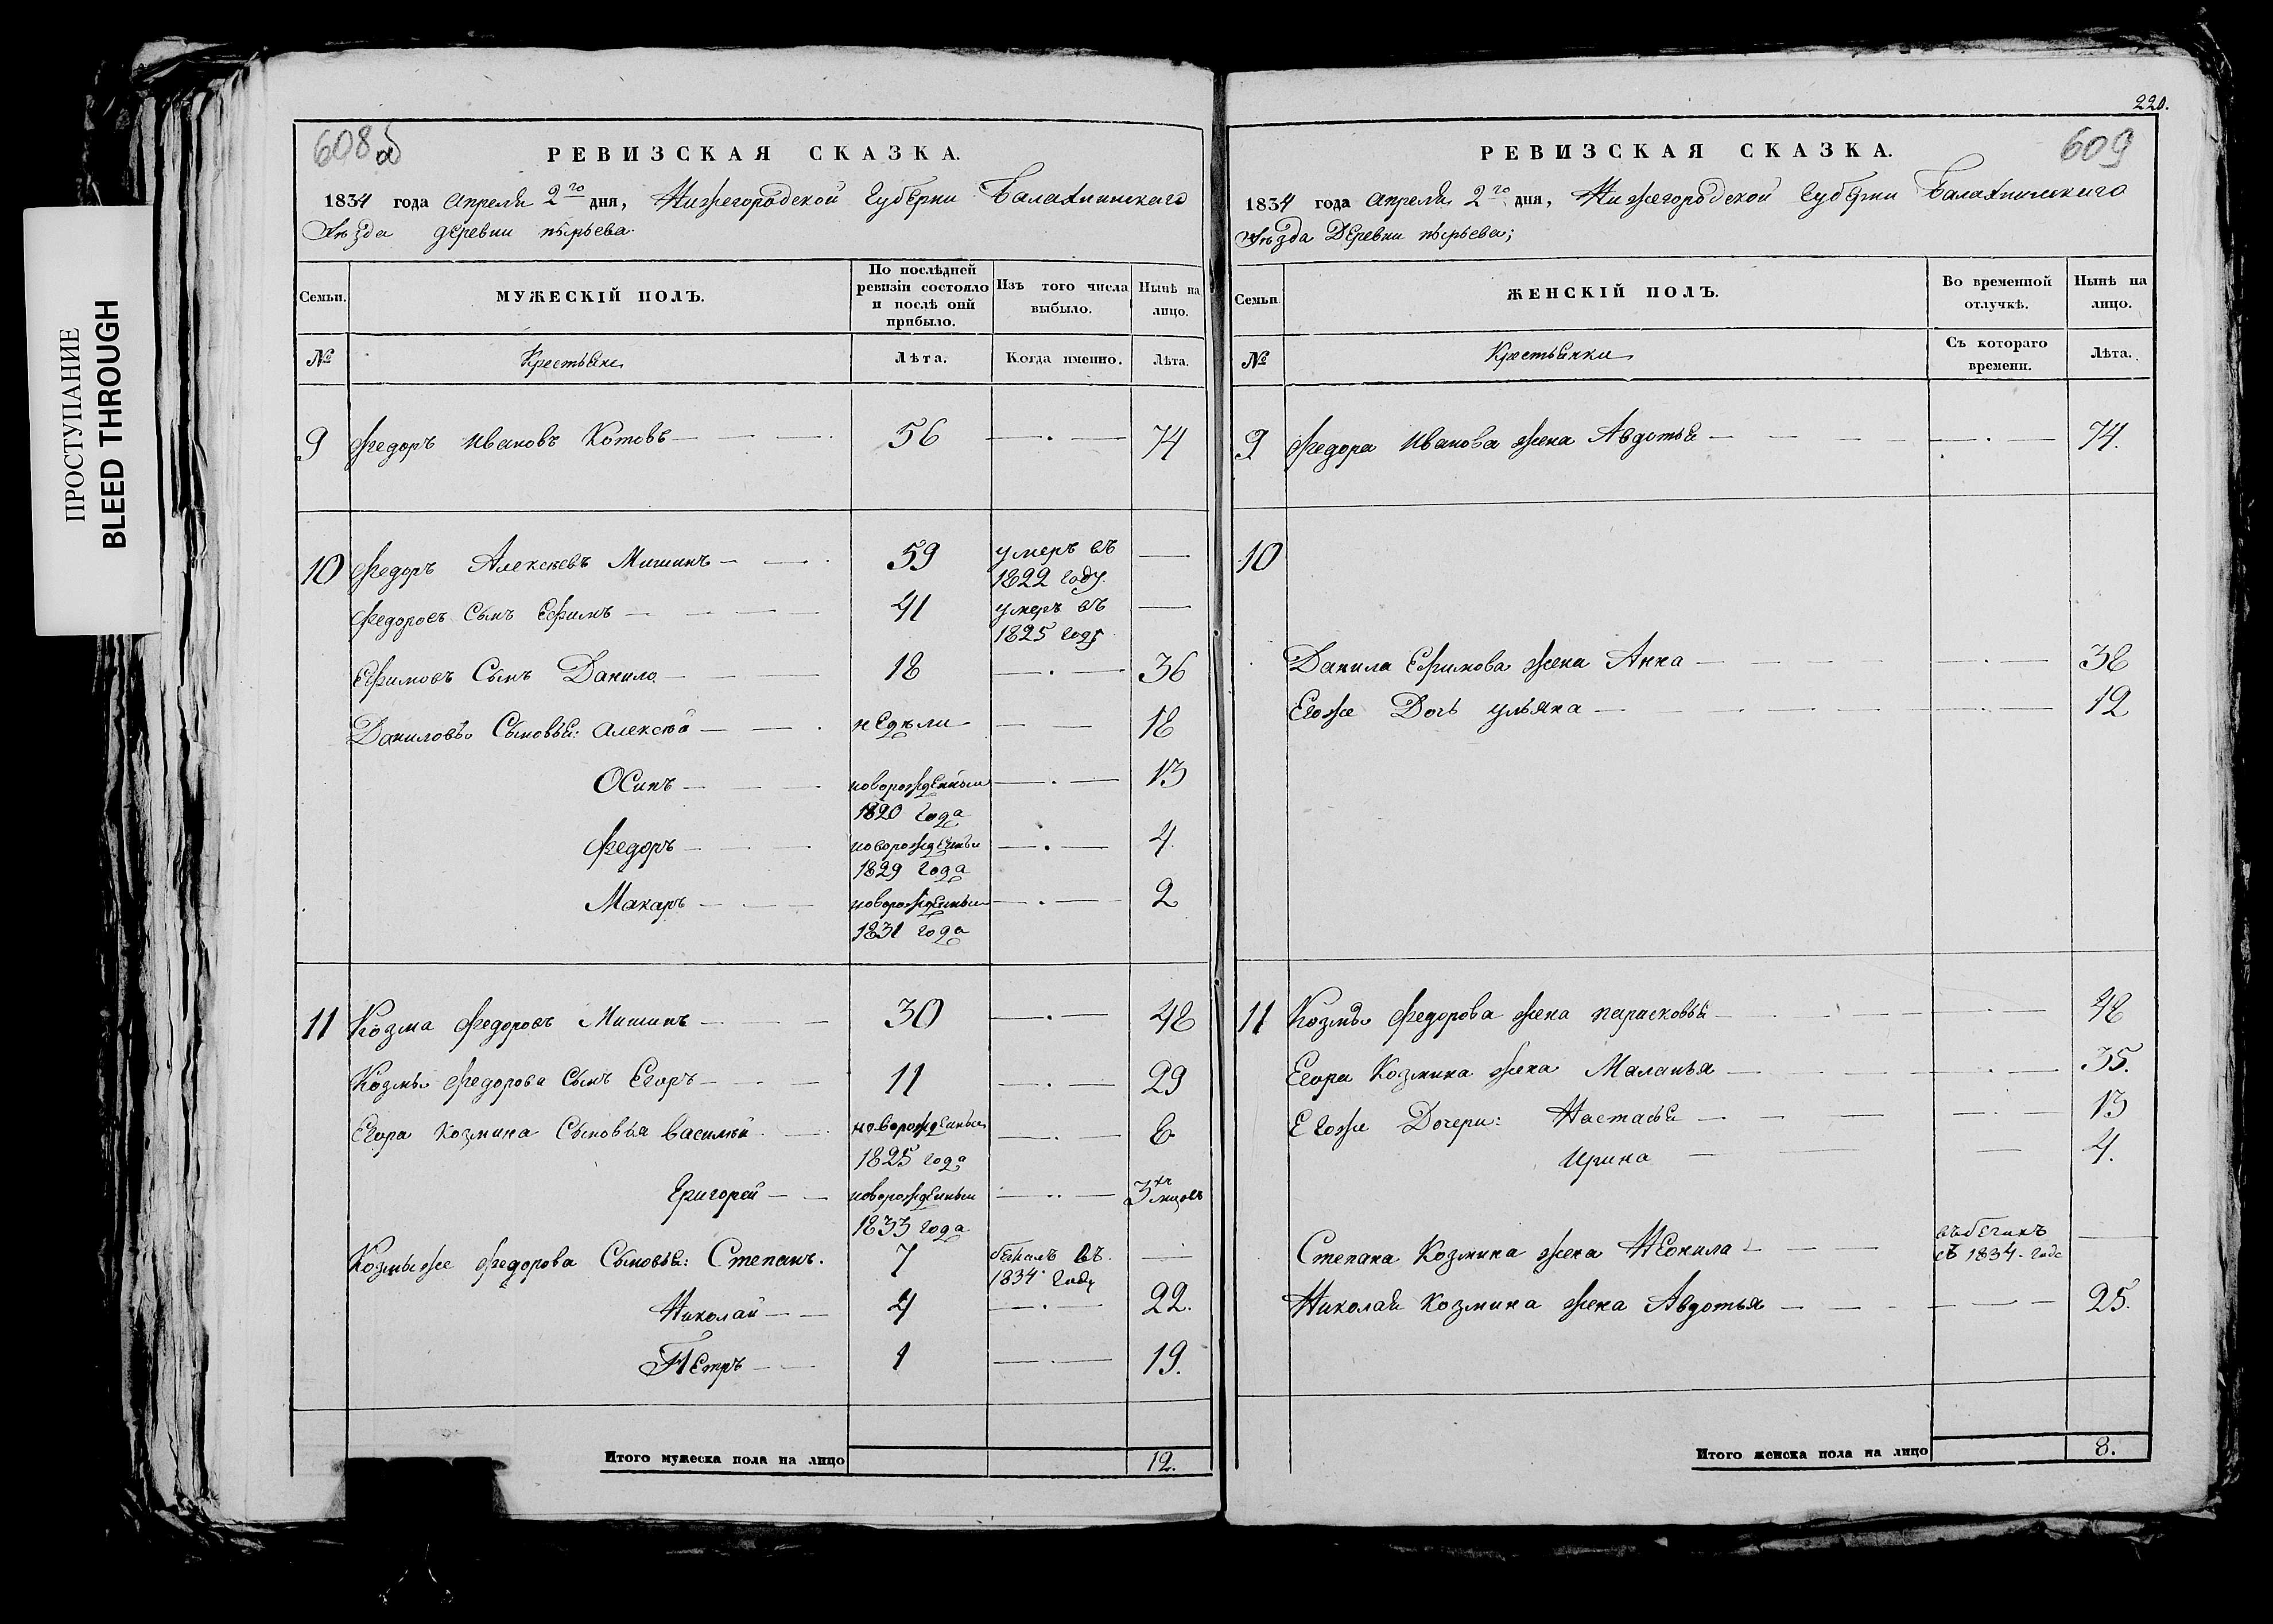 ПРОСТУПАНИЕ
BLEED THROUGH
608 об
РЕВИЗСКАЯ СКАЗКА.
1834 года Апреля 2го дня, Нижегородской Губернии Балахнинскаго
Уѣзда деревни пырьева.
Семьи. МУЖЕСКІЙ ПОЛЪ. По послѣдней ревизіи состояло и послѣ оній прибыло. Изъ того числа выбыло. Нынѣ на лицо.
№ Крестьяне Лѣта. Когда именно. Лѣта.
9 Федоръ Ивановъ Котовъ 56 74
10 Федоръ Алексѣевъ Мишинъ 59 умеръ въ 1822 году
Федоровъ Сынъ Ефимъ 41 умеръ въ 1825 году
Ефимовъ Сынъ Данило 18 36
Даниловы Сыновья: Алексѣй недѣли 18
Осипъ новорожденный 1820 года 13
Федоръ новорожденный 1829 года 4
Макаръ новорожденный 1831 года 2
11 Козма Федоровъ Мишинъ 30 48
Козмы Федорова Сынъ Егоръ 11 29
Егора Козмина Сыновья Василий новорожденный 1825 года 8
Григорей новорожденный 1833 года 3хъ мцовъ
Козмы же Федорова Сыновья: Степанъ. 7 бежалъ въ 1834 году
Николай 4 22.
Петръ 1 19.
Итого мужеска пола на лицо 12.
220.
609
РЕВИЗСКАЯ СКАЗКА.
1834 года Апреля 2го дня, Нижегородской Губернии Балахнинскаго
Уѣзда Деревни пырьева;
Семьи ЖЕНСКІЙ ПОЛЪ. Во временной отлучкѣ. Нынѣ на лицо.
№ Крестьянки Съ котораго времени. Лѣта.
9 Федора Иванова жена Авдотья 74.
10
Данила Ефимова жена Анна 38
Егоже Дочь ульяна 12
11 Козмы Федорова жена парасковья 48
Егора Козмина жена Маланья 35.
Егоже Дочери: Настасья 13
Ирина 4.
Степана Козмина жена Неонила въбегикъ съ 1834 года
Николая Козмина жена Авдотья 25.
Итого женска пола на лицо 8.